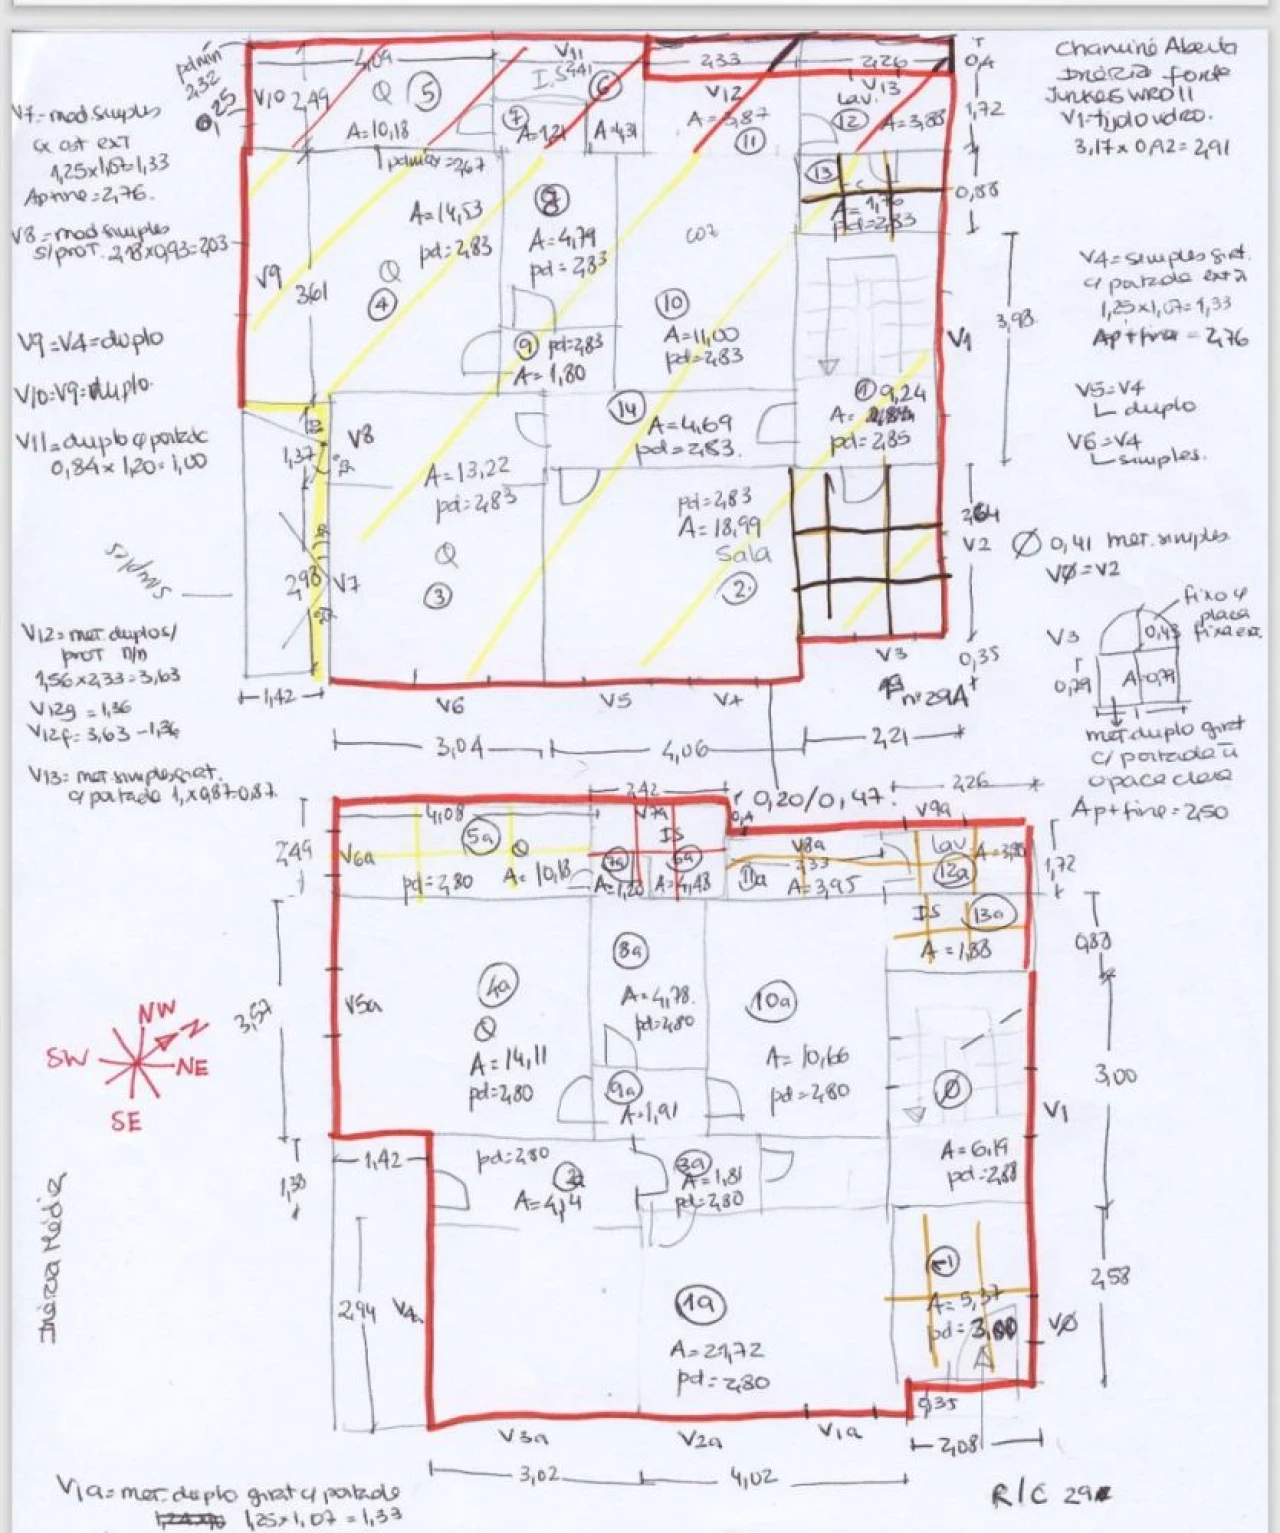 chaminé Aberta
Inércia forte
Junkers WRD11
V1=tijolo vidro.
3,17 x 0,92 = 2,91
V4= simples girat.
c/ portada ext
1,25x1,07=1,33
Ap+fina = 2,76
V5=V4
duplo
V6=V4
simples.
0,41 met. simples
VØ=V2
V3
0,79
0,43
A=0,79
1
fixo c/
placa
fixa ext.
met duplo girat
c/ portada
opaca clara
Ap+fine = 2,50
V7= mod simples
1,25x1,07=1,33
Ap+fine=2,76.
V8= mod simples
s/prot. 2,18x0,93=2,03
V9=V4=duplo
V10=V9=duplo.
V11=duplo c/ portadc
0,84 x 1,20=1,00
simples
V12= met. duplo s/
prot n/n
1,56x2,33=3,63
V12g = 1,36
V12f= 3,63-1,36
V13= met. simples girat.
c/ portado 1,x0,87=0,87.
pdmín
2,32
25
1
4,09
V11
2,33
2,26
0,4
V10
2,49
Q
5
I.S
6
V12
V13
Lav.
12
A=3,88
1,72
A=10,18
7
A=1,21
A=4,31
A=3,87
11
pdmax=2,67
13
A=1,76
pd=2,83
0,88
A=14,53
pd=2,83
8
A=4,79
pd=2,83
coz
V9
3,61
Q
4
10
A=11,00
pd=2,83
V1
3,93
9
pd=2,83
A=1,80
1
9,24
A=
pd=2,85
14
A=4,69
pd=2,83.
V8
1,37
A=13,22
pd=2,83
pd=2,83
A=18,99
Sala
2
2,64
V2
Q
3
2,98
V7
V3
0,35
nº29A
1,42
V6
V5
V4
3,04
4,06
2,21
2,42
0,20/0,47.
2,26
4,08
V7a
0,4
V9a
2,49
V6a
5a
Q
IS
7a
6a
V8a
2,33
Lav
12a
1,72
pd=2,80
A=10,18
A=1,20
A=4,48
11a
A=3,95
IS
13a
A=1,88
0,88
8a
A=4,78.
pd=2,80
4a
Q
A=14,11
pd=2,80
10a
A=10,66
pd=2,80
3,57
V5a
9a
A=1,91
Ø
A=6,19
pd=2,88
3,00
V1
1,42
1,38
pd=2,80
2a
A=4,14
3a
A=1,81
pd=2,80
NW
N
SW
NE
SE
Inércia Média
2,94
V4a
1a
A=21,72
pd=2,80
-1
A=5,37
pd=3,00
2,58
VØ
0,35
V3a
V2a
V1a
2,08
3,02
4,02
R/C 29
V1a=met. duplo girat c/ portada
1,25x1,07=1,33